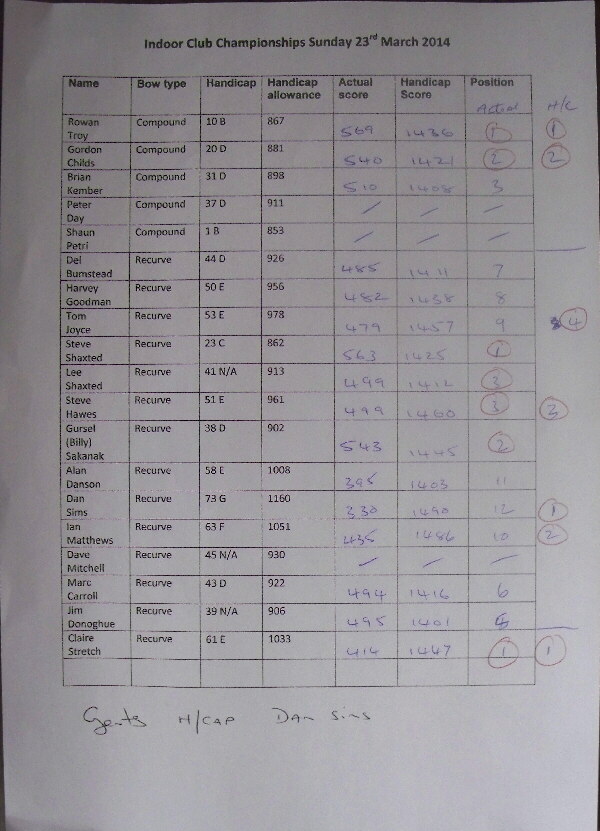 Indoor Club Championships Sunday 23rd March 2014
Name Bow type Handicap Handicap allowance Actual score Handicap Score Position Actual H/C
Rowan Troy Compound 10 B 867 569 1436 1 1
Gordon Childs Compound 20 D 881 540 1421 2 2
Brian Kember Compound 31 D 898 510 1408 3
Peter Day Compound 37 D 911 / / /
Shaun Petri Compound 1 B 853 / / /
Del Bumstead Recurve 44 D 926 485 1411 7
Harvey Goodman Recurve 50 E 956 482 1438 8
Tom Joyce Recurve 53 E 978 479 1457 9 4
Steve Shaxted Recurve 23 C 862 563 1425 1
Lee Shaxted Recurve 41 N/A 913 499 1412 3
Steve Hawes Recurve 51 E 961 499 1460 3 3
Gursel (Billy) Sakanak Recurve 38 D 902 543 1445 2
Alan Danson Recurve 58 E 1008 395 1403 11
Dan Sims Recurve 73 G 1160 330 1490 12 1
Ian Matthews Recurve 63 F 1051 435 1486 10 2
Dave Mitchell Recurve 45 N/A 930 / / /
Marc Carroll Recurve 43 D 922 494 1416 6
Jim Donoghue Recurve 39 N/A 906 495 1401
Claire Stretch Recurve 61 E 1033 414 1447 1 1
Gents H/CAP Dan Sims